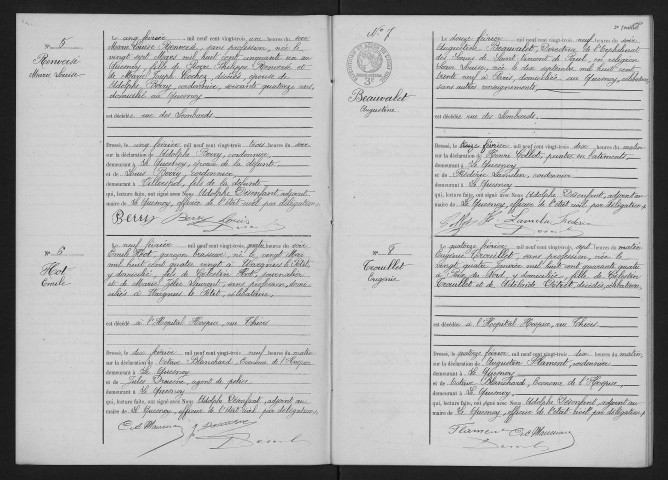 N° 5
Marie Louise
Le cinq février mil neuf cent vingt-trois une heures du soir
Marie Louise, sans profession, née le
vingt sept mars mil huit cent cinquante un au
Quesnoy, fille de Philippe et
de Marie Joseph décédés, épouse de
Adolphe Berry, cordonnier,
domicilié au Quesnoy
est décédée rue des Lombards
Dressé, le cinq février mil neuf cent vingt-trois trois heures du soir
sur la déclaration de Adolphe Berry, cordonnier,
demeurant à Le Quesnoy, époux de la défunte
et de Louis Berry, cordonnier,
demeurant à Villerspol, fils de la défunte
qui, lecture faite, ont signé avec Nous Adolphe adjoint
maire de Le Quesnoy, officier de l'état civil par délégation
Berry Berry Louis
N° 6
Hot
Emile
Le neuf février mil neuf cent vingt-trois quatre heures du soir
Emile Hot, garçon brasseur, né le vingt Mai
mil huit cent quatre vingt à Wargnies le Petit,
y domicilié, fils de Célestin Hot, journalier
et de Marie sans profession, domi
ciliés à Wargnies le Petit, célibataire,
est décédé à l'Hôpital Hospice, rue Thiers
Dressé, le dix février mil neuf cent vingt-trois neuf heures du matin
sur la déclaration de Octave Blanchard, Econome de l'Hospice
demeurant à Le Quesnoy
et de Jules agent de police
demeurant à Le Quesnoy
qui, lecture faite, ont signé avec Nous Adolphe adjoint au
maire de Le Quesnoy, officier de l'état civil par délégation
N° 7
Beauvalet
Augustine
Le douze février mil neuf cent vingt-trois neuf heures du soir
Augustine Beauvalet, Directrice de l'Orphelinat
des Soeurs de Saint Vincent de Paul, en religion
Soeur Louise, née le dix septembre mil huit cent
trente neuf à Paris, domiciliée au Quesnoy, célibataire
sans autres renseignements
est décédée rue des Lombards
Dressé, le treize février mil neuf cent vingt-trois dix heures du matin
sur la déclaration de Henri Gillot, peintre en bâtiments
demeurant à Le Quesnoy
et de Frédéric Lamelin, cordonnier
demeurant à Le Quesnoy
qui, lecture faite, ont signé avec Nous Adolphe adjoint au
maire de Le Quesnoy, officier de l'état civil par délégation
Lamelin Frédéric
N° 8
Trouillet
Eugénie
Le quatorze février mil neuf cent vingt-trois sept heures du matin
Eugénie Trouillet, sans profession, née le
vingt quatre Janvier mil huit cent quarante quatre
y domiciliée, fille de Célestin
Trouillet et de Adélaïde décédés, célibataire,
est décédée à l'Hôpital Hospice, rue Thiers
Dressé, le quatorze février mil neuf cent vingt-trois dix heures du matin
sur la déclaration de Augustin Flament, cordonnier
demeurant à Le Quesnoy
et de Octave Blanchard, Econome de l'Hospice,
demeurant à Le Quesnoy
qui, lecture faite, ont signé avec Nous Adolphe adjoint au
maire de Le Quesnoy, officier de l'état civil par délégation
Flament